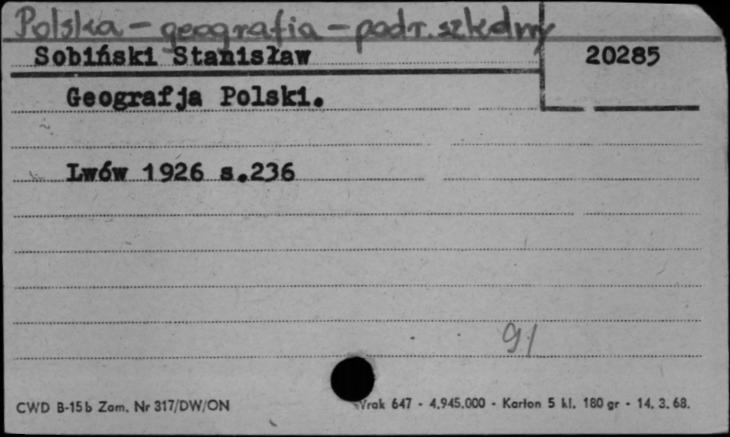 Polska - geografia - podr. szkolny
Sobiński Stanisław 20285
Geografja Polski.
Lwów 1926 s.236
91
CWD B-15b Zam. Nr 317/DW/ON Vrak 647 - 4.945.000 - Karton 5 kl. 180 gr - 14. 3. 68.